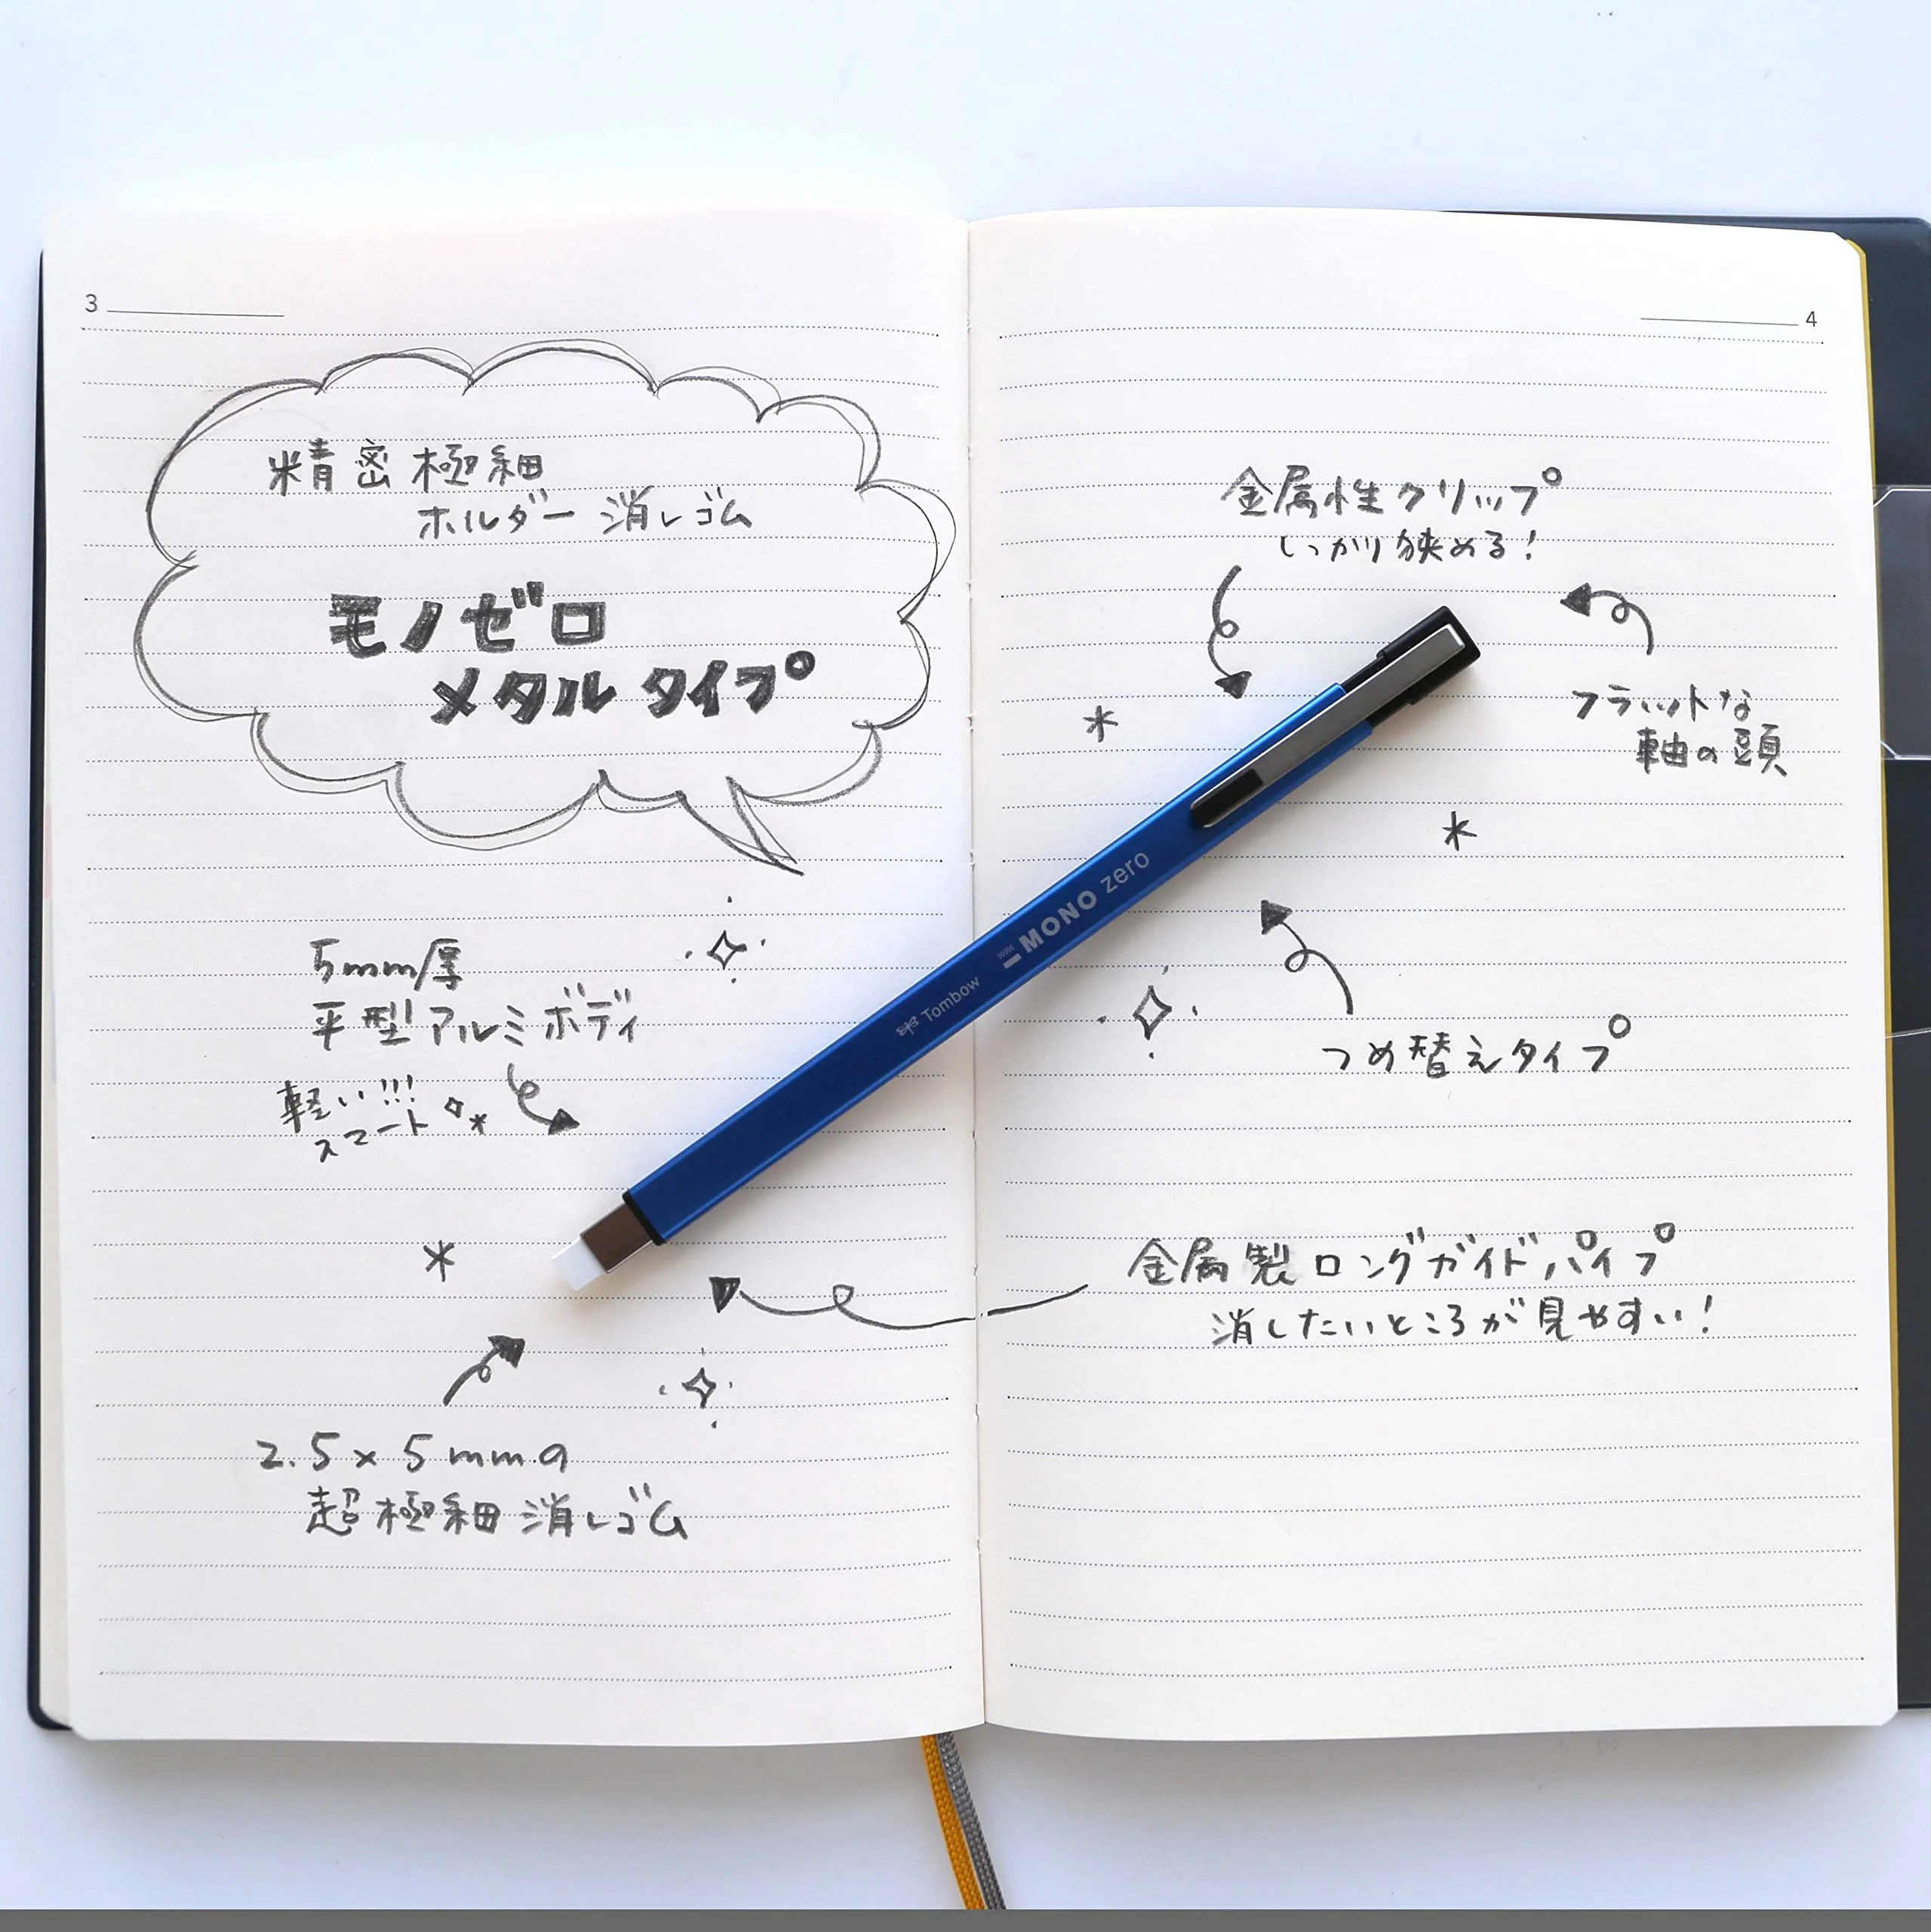 3
精密極細
ホルダー消しゴム
モノゼロ
メタルタイプ
5mm厚
平型アルミボディ
軽い!!!
スマート
2.5×5mmの
超極細消しゴム
4
金属性クリップ
しっかり狭める!
フラットな
軸の頭
MONO zero
Tombow
つめ替えタイプ
金属製ロングガイドパイプ
消したいところが見やすい!